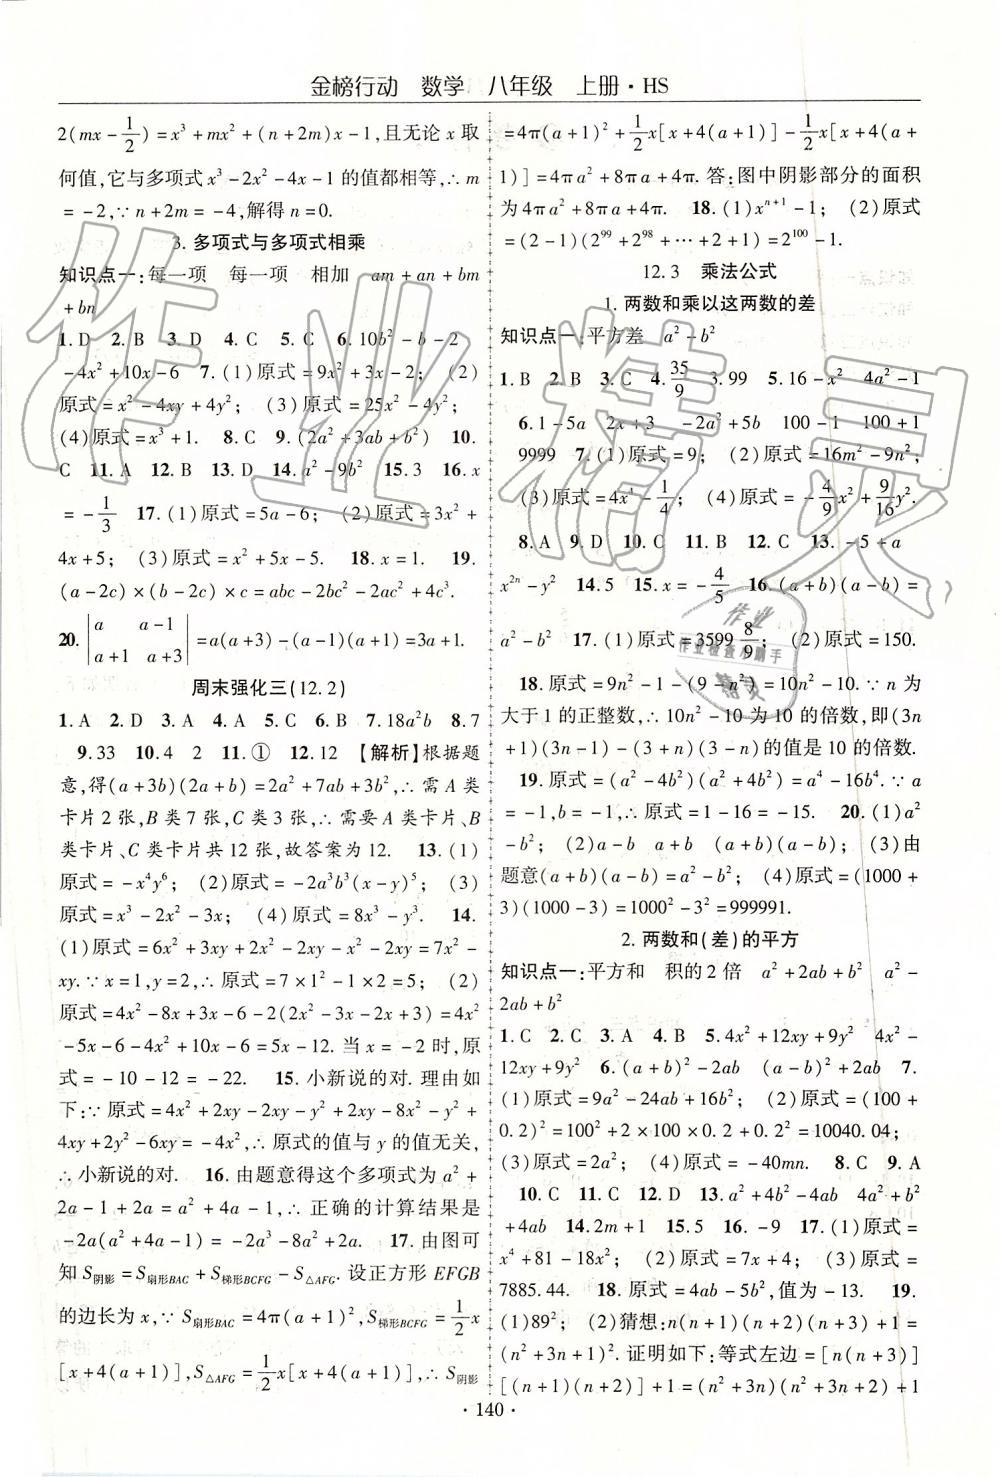 金榜行动　数学　八年级　上册·HS
2(mx-1/2)=x³+mx²+(n+2m)x-1,且无论 x 取
何值,它与多项式 x³-2x²-4x-1 的值都相等,∴m
=-2,∵n+2m=-4,解得 n=0.
3. 多项式与多项式相乘
知识点一:每一项　每一项　相加　am+an+bm
+bn
1. D　2. B　3. D　4. C　5. C　6. 10b²-b-2
-4x²+10x-6　7. (1)原式=9x²+3x-2;　(2)
原式=x²-4xy+4y²;　(3)原式=25x²-2xy-y²;
(4)原式=x³+1.　8. C　9. (2a²+3ab+b²)　10.
C　11. A　12. B　13. D　14. a²-9b²　15. 3　16. x
=-1/3　17. (1)原式=5a-6;　(2)原式=3x²+
4x+5;　(3)原式=x²+5x-5.　18. x=1.　19.
(a-2c)×(b-2c)×c=abc-2bc²-2ac²+4c³.
20. |a　a-1; a+1　a+3|=a(a+3)-(a-1)(a+1)=3a+1.
周末强化三(12.2)
1. A　2. D　3. D　4. A　5. C　6. B　7. 18a²b　8. 7
9. 33　10. 4　2　11. ①　12. 12　【解析】根据题
意,得(a+3b)(2a+b)=2a²+7ab+3b²,∴需 A 类
卡片 2 张,B 类 7 张,C 类 3 张,∴需要 A 类卡片、B
类卡片、C 类卡片共 12 张,故答案为 12.　13. (1)
原式=-x⁴y⁶;　(2)原式=-2a³b³(x-y)⁵;　(3)
原式=x³-2x²-3x;　(4)原式=8x³-y³.　14.
(1)原式=6x²+3xy+2xy+y²-6x²-y²+2xy=7x²-
xy.∵x=1,y=2,∴原式=7×1²-1×2=5;　(2)
原式=4x²-8x+3x-6-2(2x²-3x-2x+3)=4x²
-5x-6-4x²+10x-6=5x-12. 当 x=-2 时,原
式=-10-12=-22.　15. 小新说的对. 理由如
下:∵原式=4x²+2xy-2xy-y²+2xy-8x²-y²+
4xy+2y²-6xy=-4x²,∴原式的值与 y 的值无关,
∴小新说的对.　16. 由题意得这个多项式为 a²+
2a-1+2a=a²+4a-1,∴正确的计算结果是
-2a(a²+4a-1)=-2a³-8a²+2a.　17. 由图可
知 S阴影=S扇形BAC+S梯形BCFG-S△AFG. 设正方形 EFGB
的边长为 x,∵S扇形BAC=4π(a+1)²,S梯形BCFG=1/2x
[x+4(a+1)],S△AFG=1/2x[x+4(a+1)],∴S阴影
=4π(a+1)²+1/2x[x+4(a+1)]-1/2x[x+4(a+
1)]=4πa²+8πa+4π. 答:图中阴影部分的面积
为 4πa²+8πa+4π.　18. (1)xⁿ⁺¹-1;　(2)原式
=(2-1)(2⁹⁹+2⁹⁸+…+2+1)=2¹⁰⁰-1.
12.3　乘法公式
1. 两数和乘以这两数的差
知识点一:平方差　a²-b²
1. B　2. B　3. C　4. 35/9　3.99　5. 16-x²　4a²-1
6. 1-5a　2x+3　-2a²+5b　100-1　100+1
9999　7. (1)原式=9;　(2)原式=16m²-9n²;
(3)原式=4x⁴-1/4;　(4)原式=-4/9x²+9/16y².
8. A　9. D　10. C　11. B　12. C　13. -5+a
x²ⁿ-y²　14. 5　15. x=-4/5　16. (a+b)(a-b)=
a²-b²　17. (1)原式=3599 8/9;　(2)原式=150.
18. 原式=9n²-1-9+n²=10n²-10.∵n 为
大于 1 的正整数,∴10n²-10 为 10 的倍数,即(3n
+1)(3n-1)-(3-n)(3+n)的值是 10 的倍数.
19. 原式=(a²-4b²)(a²+4b²)=a⁴-16b⁴.∵a
=-1,b=1,∴原式=1-16=-15.　20. (1)a²
-b²;　(2)a-b　a+b　(a+b)(a-b);　(3)由
题意(a+b)(a-b)=a²-b²;　(4)原式=(1000+
3)(1000-3)=1000²-3²=999991.
2. 两数和(差)的平方
知识点一:平方和　积的 2 倍　a²+2ab+b²　a²-
2ab+b²
1. C　2. C　3. A　4. B　5. 4x²+12xy+9y²　4x²-
12xy+9y²　6. (-2ab)　-2ab　(+2ab)　2ab　7.
(1)原式=9a²-24ab+16b²;　(2)原式=(100+
0.2)²=100²+2×100×0.2+0.2²=10040.04;
(3)原式=2a²;　(4)原式=-40mn.　8. C　9. A
10. C　11. D　12. D　13. a²+4b²-4ab　4a²+b²
+4ab　14. 2m+1　15. 5　16. -9　17. (1)原式=
x⁴+81-18x²;　(2)原式=7x+4;　(3)原式=
7885.44.　18. 原式=4ab-5b²,值为-13.　19.
(1)89²;　(2)猜想:n(n+1)(n+2)(n+3)+1=
(n²+3n+1)². 证明如下:等式左边=[n(n+3)]
[(n+1)(n+2)]+1=(n²+3n)(n²+3n+2)+1
·140·
作业精灵
作业
作业检查小助手
精灵